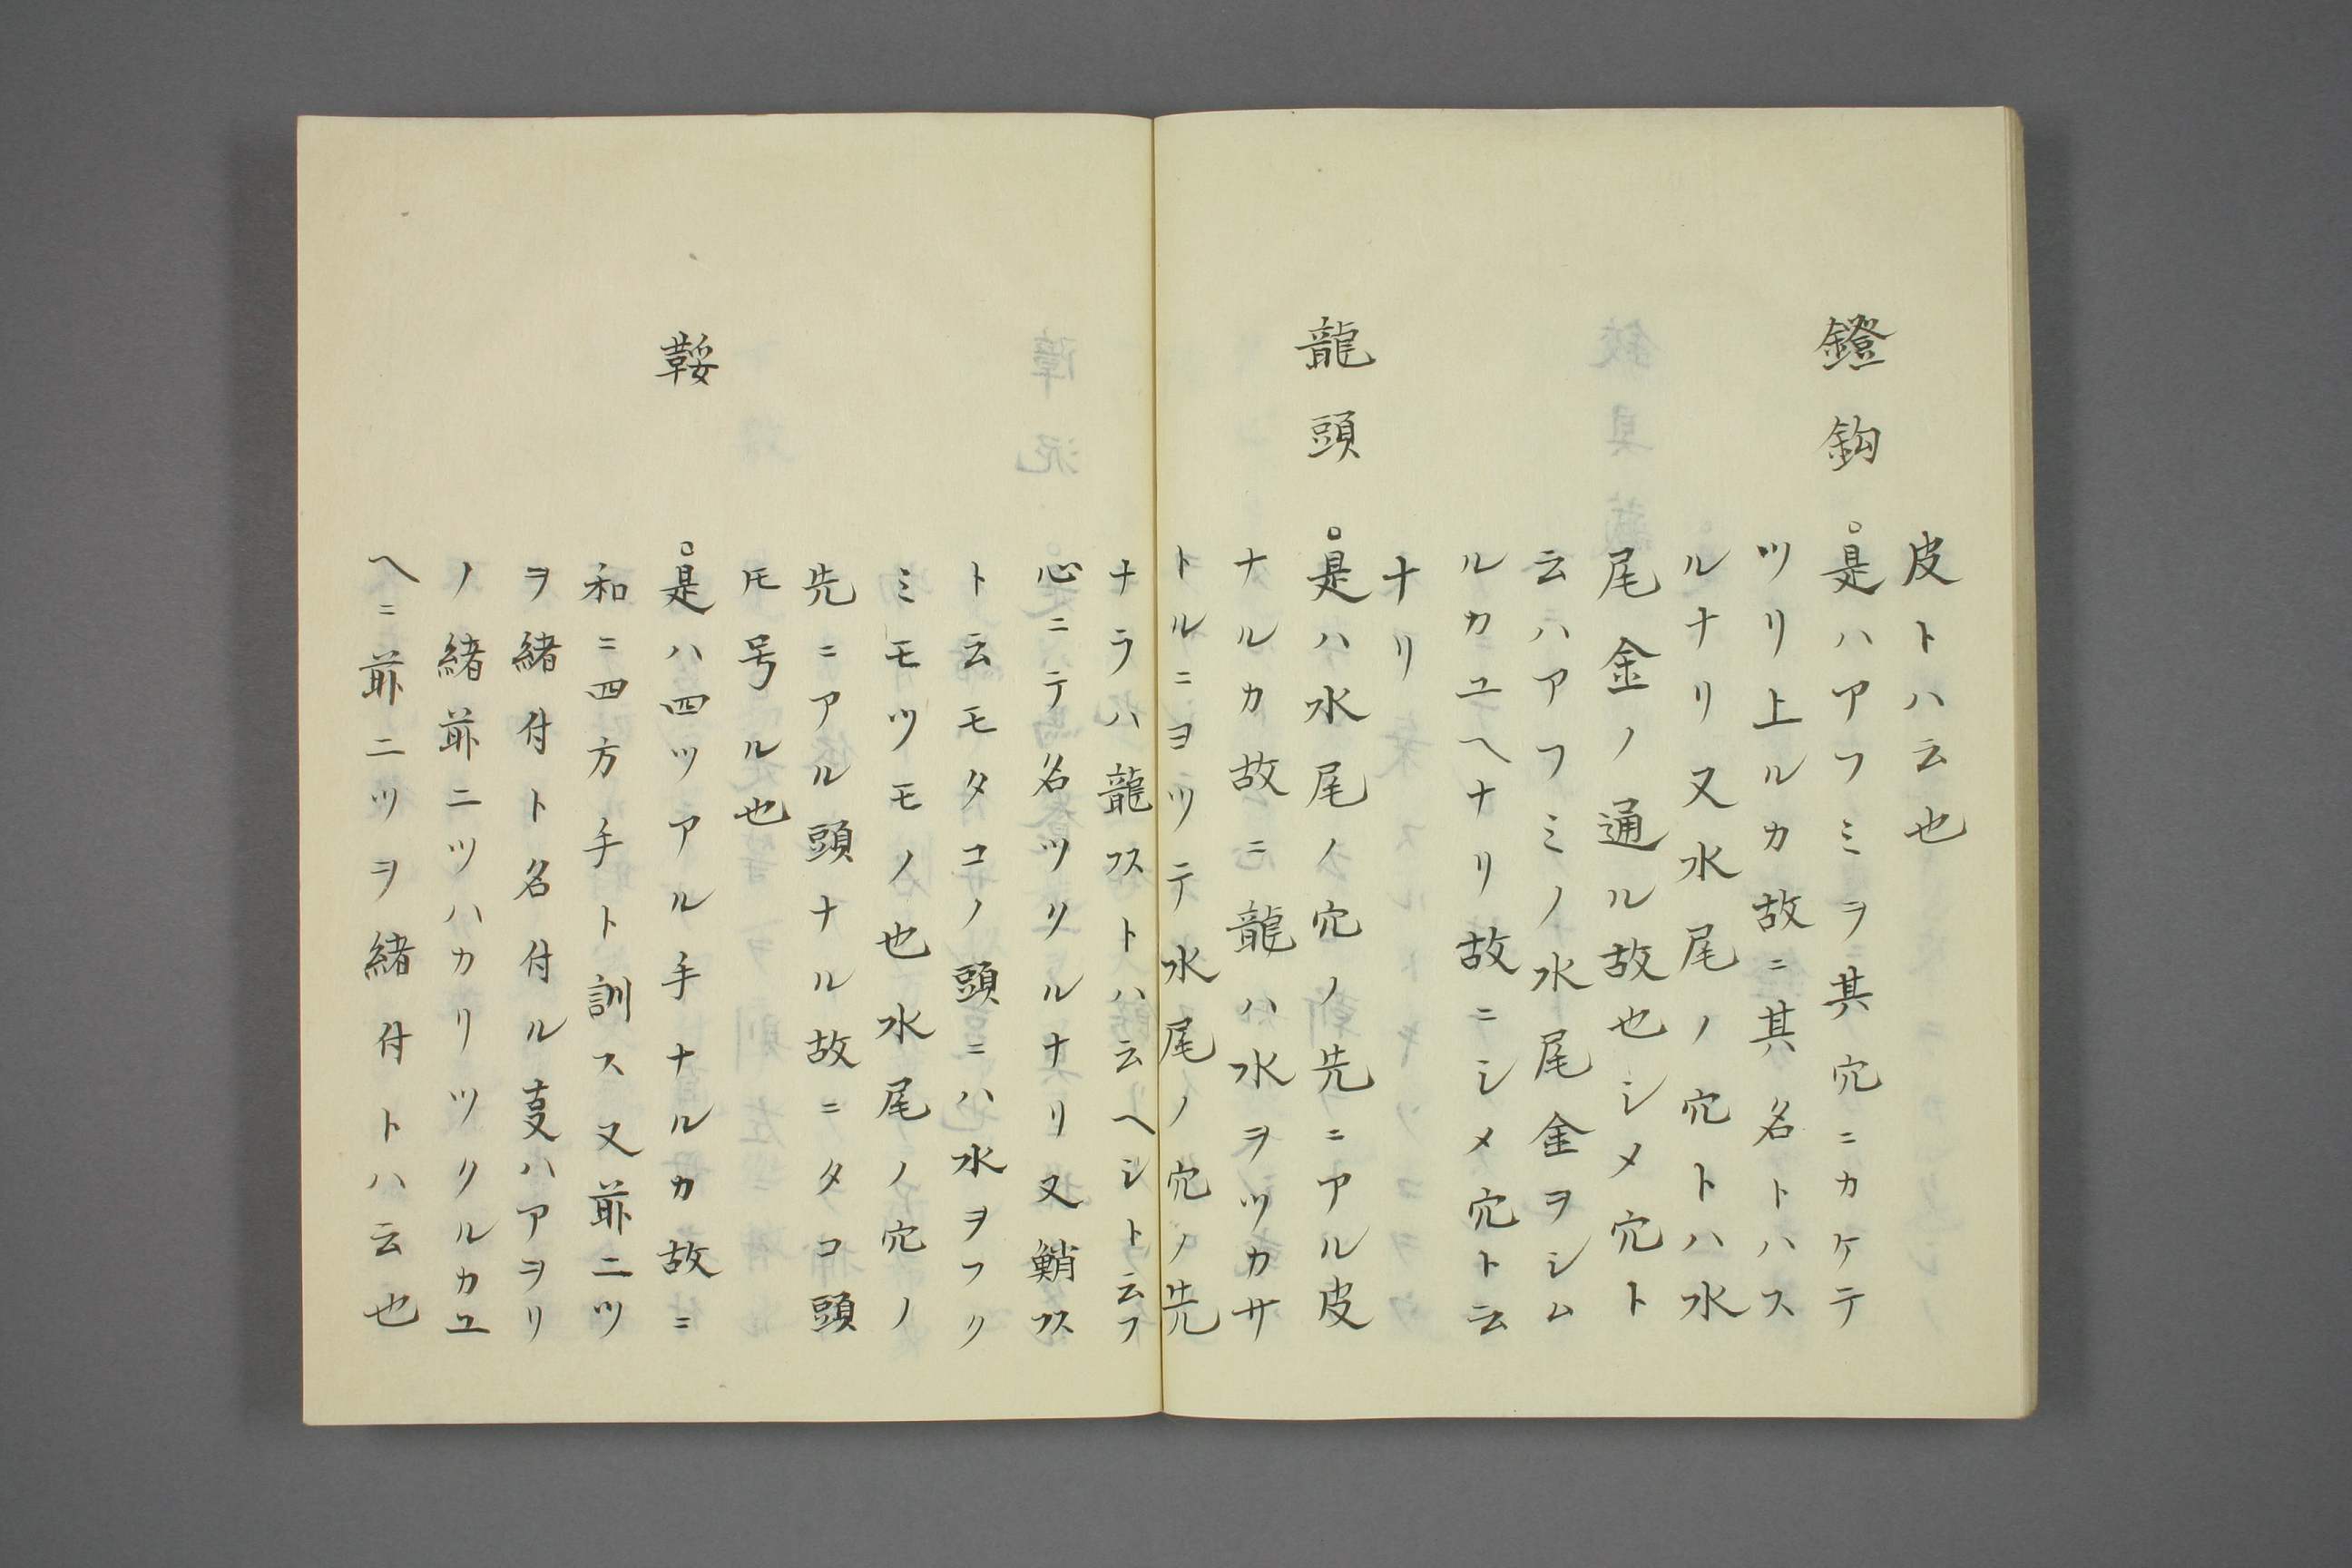 皮トハ云也
鐙鈎。是ハアフミヲ其穴ニカケテ
ツリ上ルカ故ニ其名トハス
ルナリ又水尾ノ穴トハ水
尾金ノ通ル故也シメ穴ト
云ハアフミノ水尾金ヲシム
ルカユヘナリ故ニシメ穴ト云
ナリ
龍頭。是ハ水尾ノ穴ノ先ニアル皮
ナルカ故ニ龍ハ水ヲツカサ
トルニヨツテ水尾ノ穴ノ先
ナラハ龍フストハ云ヘシト云フ
心ニテ名ツリルナリ又鮹フス
ト云モタコノ頭ニハ水ヲフク
ミモツモノ也水尾ノ穴ノ
先ニアル頭ナル故ニタコ頭
𪜈号ル也
鞍。是ハ四ツアル手ナルカ故ニ
和ニ四方手ト訓ス又前ニツ
ヲ緒付ト名付ル叓ハアヲリ
ノ緒前ニツハカリツクルカユ
ヘニ前ニツヲ緒付トハ云也